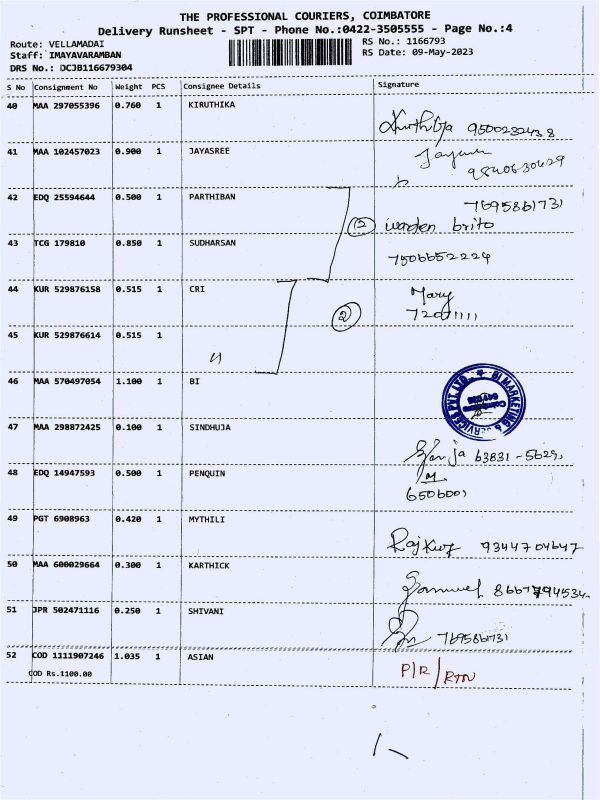 THE PROFESSIONAL COURIERS, COIMBATORE
Delivery Runsheet - SPT - Phone No.:0422-3505555 - Page No.:4
Route: VELLAMADAI
RS No.: 1166793
Staff: IMAYAVARAMBAN
RS Date: 09-May-2023
DRS No.: DCJB116679304
S No Consignment No Weight PCS Consignee Details Signature
40 MAA 297055396 0.760 1 KIRUTHIKA
9500232438
41 MAA 102457023 0.900 1 JAYASREE
9840630629
42 EDQ 25594644 0.500 1 PARTHIBAN
7695861731
warden brito
43 TCG 179810 0.850 1 SUDHARSAN
7506652224
44 KUR 529876158 0.515 1 CRI
Mary
2
45 KUR 529876614 0.515 1
46 MAA 570497054 1.100 1 BI
BI MARKETING & SERVICES PVT. LTD.
47 MAA 298872425 0.100 1 SINDHUJA
63831-5629
48 EDQ 14947593 0.500 1 PENQUIN
6506001
49 PGT 6908963 0.420 1 MYTHILI
9344704647
50 MAA 600029664 0.300 1 KARTHICK
51 JPR 502471116 0.250 1 SHIVANI
52 COD 1111907246 1.035 1 ASIAN
COD Rs.1100.00
P/R/RTN